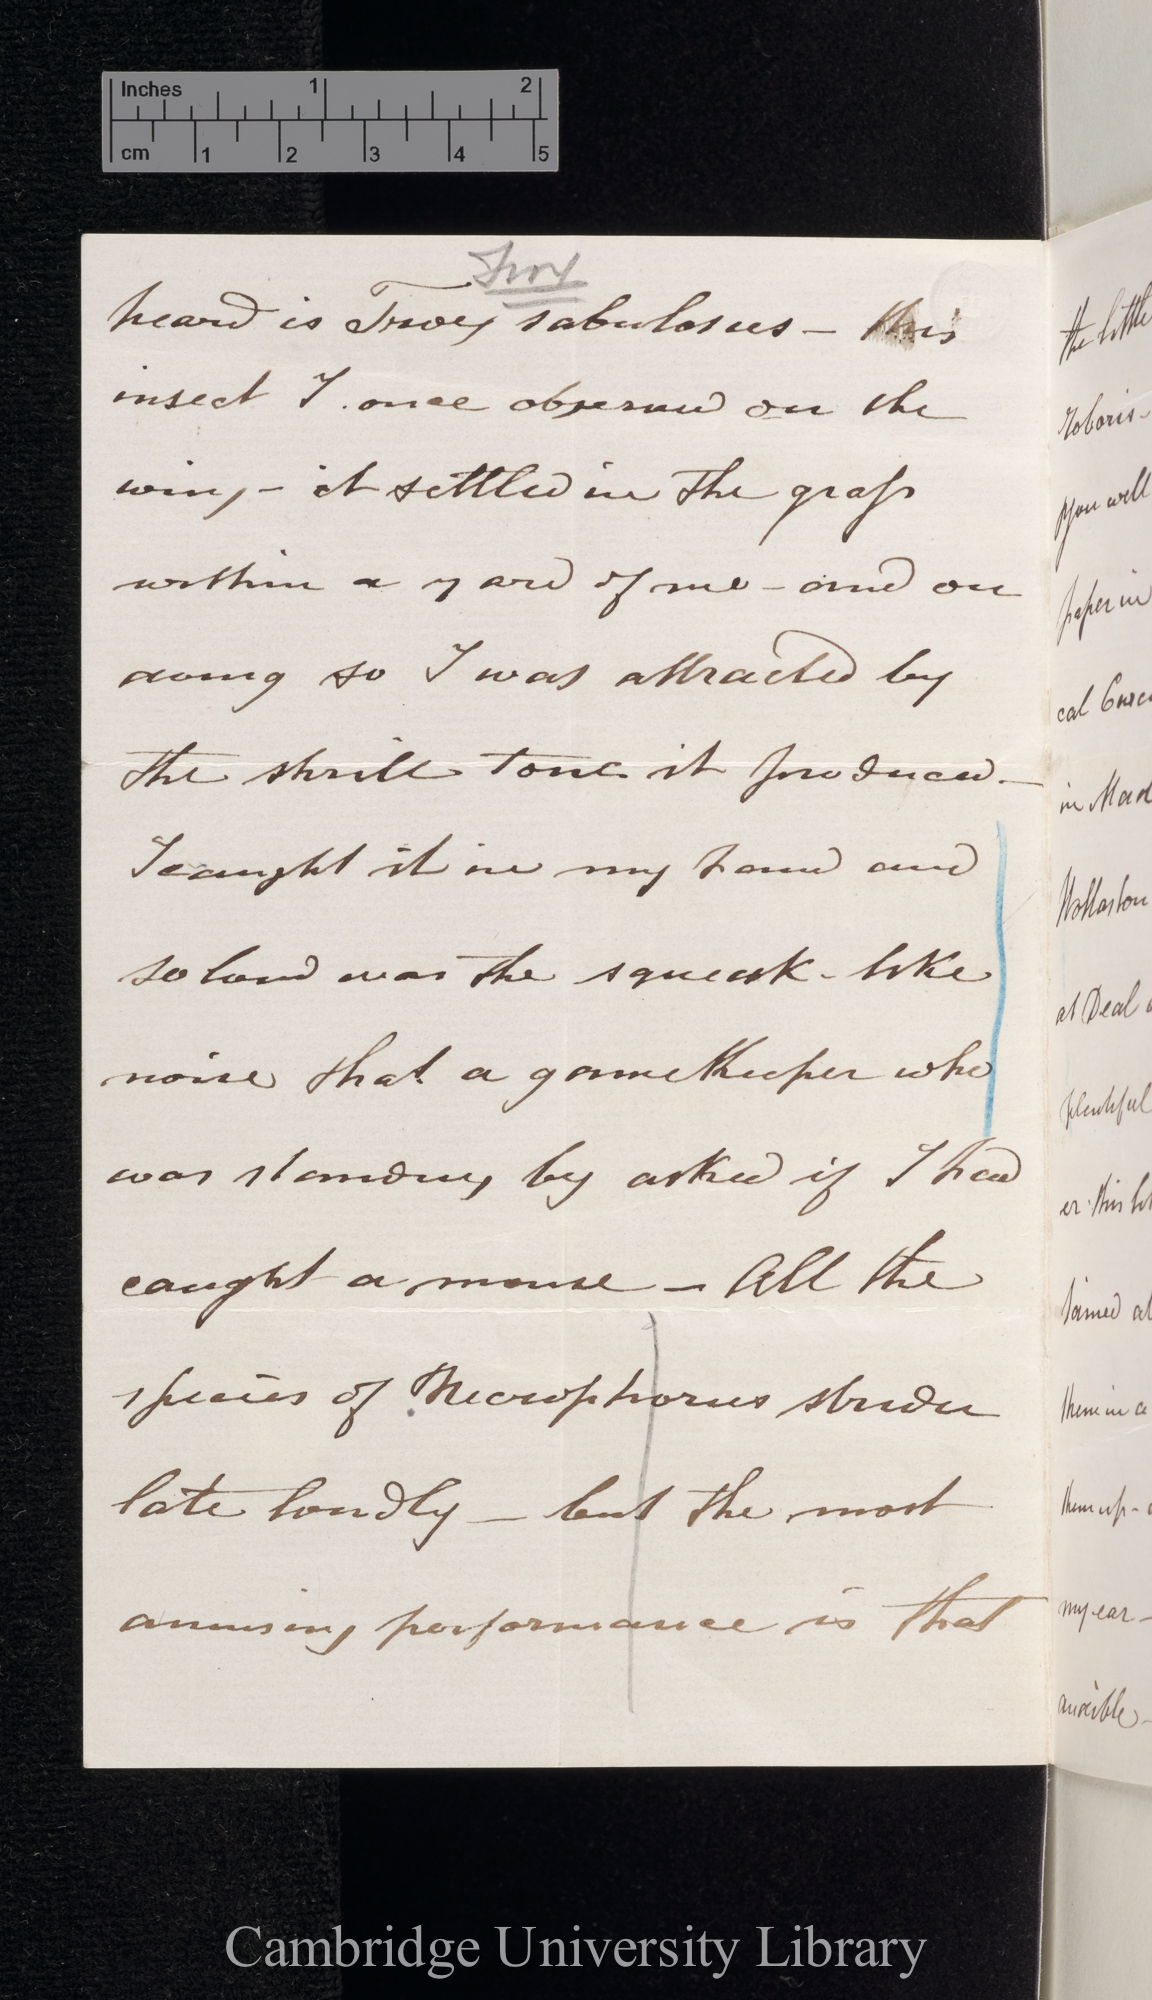 Inches 1 2
cm 1 2 3 4 5
Trox
heard is Trox sabulosus – this
insect I once observed on the
wing – it settled in the grass
within a yard of me – and on
doing so I was attracted by
the shrill tone it produced –
I caught it in my hand and
so loud was the squeak-like
noise that a gamekeeper who
was standing by asked if I had
caught a mouse – All the
species of Necrophorus stridu
late loudly – but the most
amusing performance is that
the little
roboris –
you will
paper in
cal
in Mad
Wollaston
at Deal
plentiful
er this
tained at
them in a
them up –
my ear –
audible –
Cambridge University Library